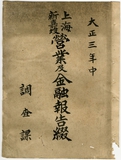 大正三年中
上海
新嘉坡
營業及金融報告綴
調查課